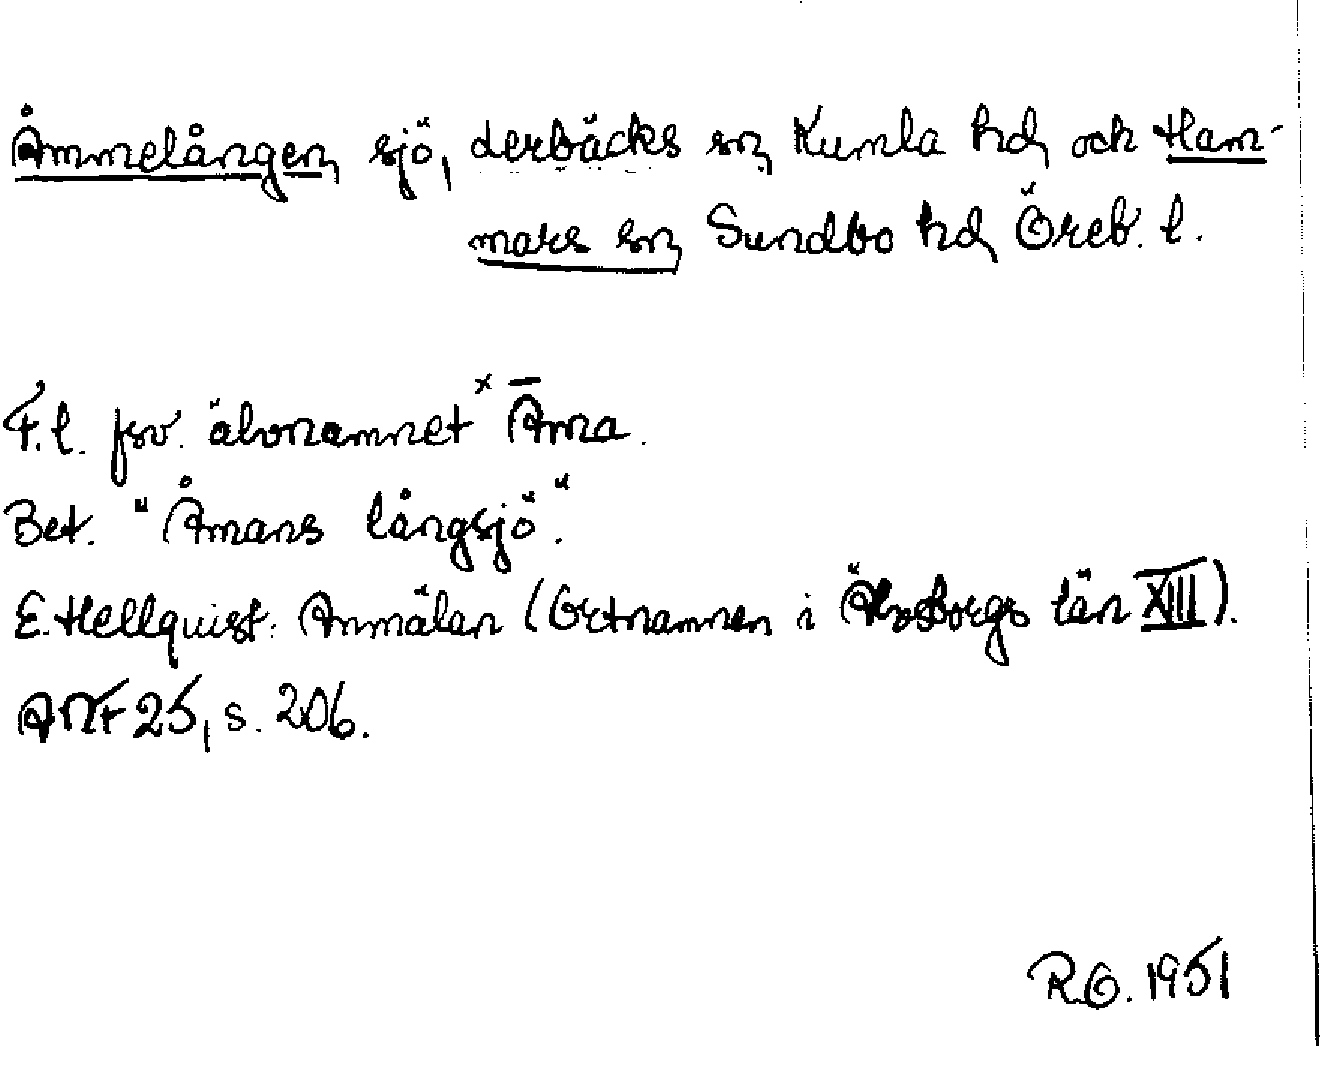 Åmmelången, sjö, Lerbäcks sn, Kumla hd, och Ham-
mars sn, Sundbo hd, Öreb. l.
F.l. fsv. älvnamnet ˣĀma.
Bet. "Åmans långsjö".
E. Hellquist: Anmälan (Ortnamnen i Älvsborgs län XIII).
ANF 25, s. 206.
R.O. 1951